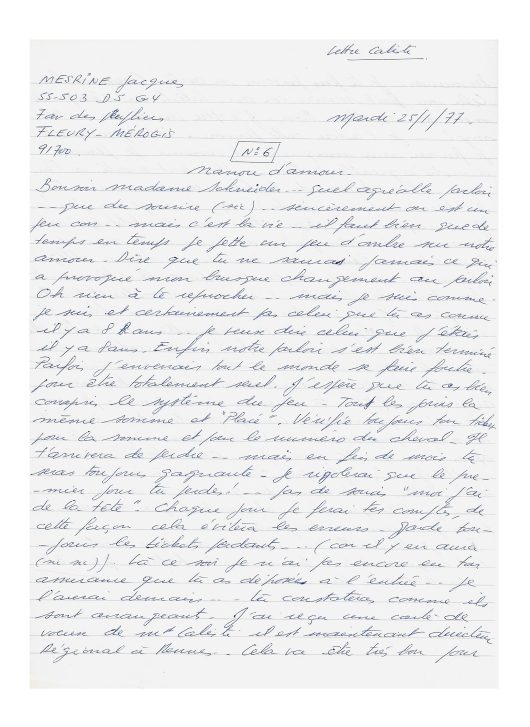 Lettre Caliste
MESRINE Jacques
55-503 D5 G4
7 av des Peupliers
FLEURY-MEROGIS
91700
Mardi 25/1/77.
N° 6
nanou d'amour.
Bonsoir madame Schneider -- quel agréable parloir
-- que du sourire (sic) -- sincèrement on est un
peu con -- mais c'est la vie -- il faut bien que de
temps en temps je jette un peu d'ombre sur notre
amour. Dire que tu ne sauras jamais ce qui
a provoqué mon brusque changement au parloir
Oh rien à te reprocher -- mais je suis comme
je suis et certainement pas celui que tu as connu
il y a 8 ans -- je veux dire celui que j'étais
il y a 8 ans. Enfin notre parloir s'est bien terminé
Parfois j'enverrais tout le monde se faire foutre
pour être totalement seul. J'espère que tu as bien
compris le système du jeu - Tout les jours la
même somme et "Placé". Vérifie toujours ton ticket
pour la somme et pour le numéro du cheval - Il
t'arrivera de perdre -- mais en fin de mois tu
seras toujours gagnante - Je rigolerai que le pre-
-mier jour tu perdes! -- pas de souris "moi j'ai
de la tête". Chaque jour je ferai tes comptes, de
cette façon cela évitera les erreurs - garde tou-
-jours les tickets perdants -- (car il y en aura
(ni ni)). Là ce soir je n'ai pas encore eu ton
assurance que tu as déposée à l'entrée -- je
l'aurai demain -- tu constateras comme ils
sont arrangeant. J'ai reçu une carte de
voeux de Mr Caliste il est maintenant directeur
Régional à Rennes - Cela va être très bon pour